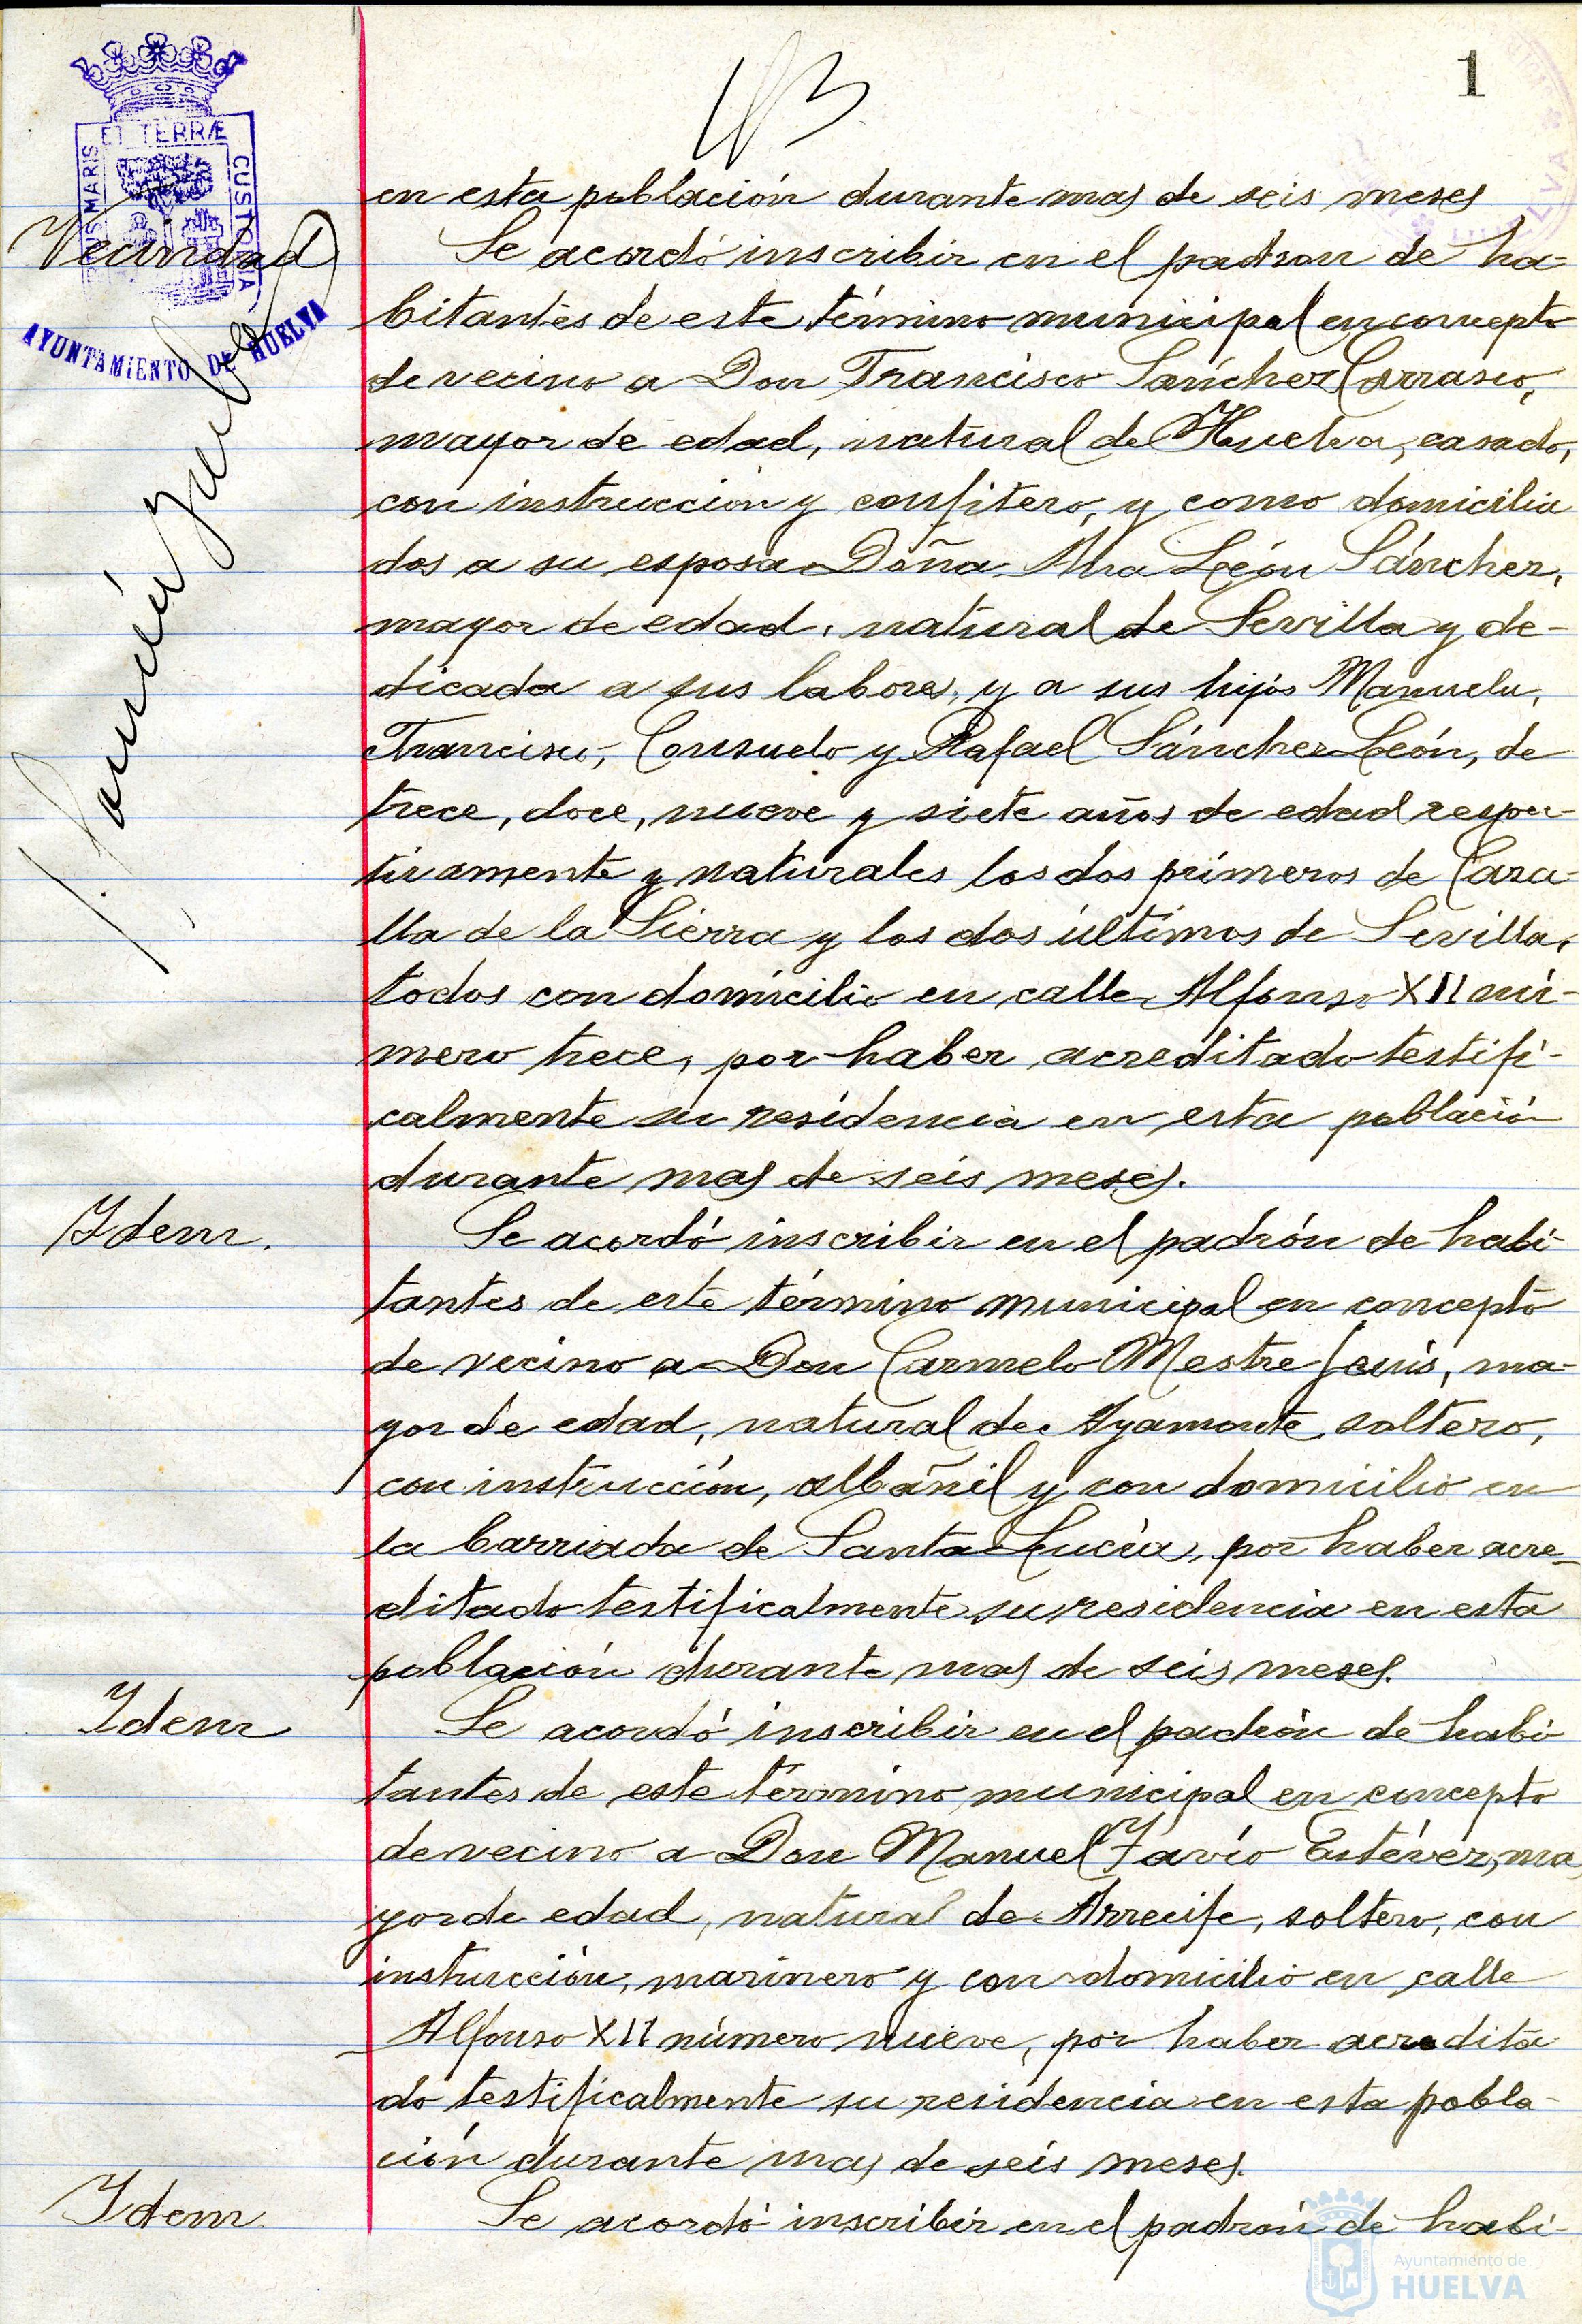 1
ET TERRÆ
CUSTODIA
MARIS
AYUNTAMIENTO DE HUELVA
en esta población durante mas de seis meses
Vecindad
Se acordó inscribir en el padron de ha-
bitantes de este término municipal en concepto
de vecino a Don Francisco Sánchez Carrasco,
mayor de edad, natural de Huelva, casado,
con instruccion y confitero, y como domicilia
dos a su esposa Doña Ana León Sánchez,
mayor de edad, natural de Sevilla y de-
dicada a sus labores, y a sus hijos Manuela,
Francisco, Consuelo y Rafael Sánchez León, de
trece, doce, nueve y siete años de edad respec-
tivamente y naturales los dos primeros de Caza-
lla de la Sierra y los dos últimos de Sevilla,
todos con domicilio en calle Alfonso XII nú-
mero trece, por haber acreditado testifi-
calmente su residencia en esta población
durante mas de seis meses.
Idem.
Se acordó inscribir en el padrón de habi-
tantes de este término municipal en concepto
de vecino a Don Carmelo Mestre, ma-
yor de edad, natural de Ayamonte, soltero,
con instrucción, albañil y con domicilio en
la barriada de Santa Lucía, por haber acre-
ditado testificalmente su residencia en esta
población durante mas de seis meses.
Idem
Se acordó inscribir en el padrón de habi
tantes de este término municipal en concepto
de vecino a Don Manuel Estévez, ma
yor de edad, natural de Arrecife, soltero, con
instrucción, marinero y con domicilio en calle
Alfonso XII número nueve, por haber acredita
do testificalmente su residencia en esta pobla-
ción durante mas de seis meses.
Idem
Se acordó inscribir en el padrón de habi-
Ayuntamiento de
HUELVA